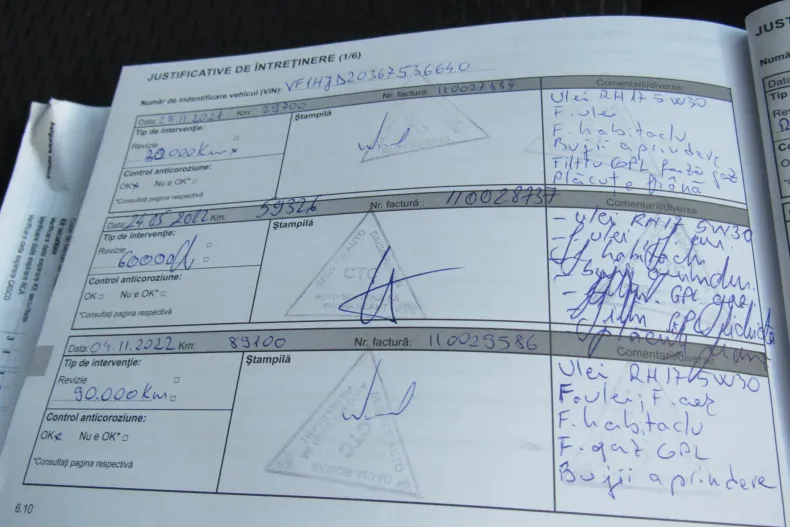 JUSTIFICATIVE DE ÎNTREȚINERE (1/6)
Număr de indentificare vehicul (VIN): VF1HJD20367536640
Data: 25.11.2021 Km: 29700 Nr. factură: 110027884 Comentarii/diverse
Tip de intervenție:
Revizie
30.000 Km
Control anticoroziune:
OK Nu e OK*
*Consultați pagina respectivă
Ștampilă
Ulei RH17 5W30
F. ulei
F. habitaclu
Bujii aprindere
Filtru GPL fază gaz
Plăcuțe frână
Data: 24.05.2022 Km: 59326 Nr. factură: 110028737 Comentarii/diverse
Tip de intervenție:
Revizie
60000
Control anticoroziune:
OK Nu e OK*
*Consultați pagina respectivă
Ștampilă
CTC
- ulei RH17 5W30
habitaclu
GPL gaz
GPL
Data: 04.11.2022 Km: 89100 Nr. factură: 110029586 Comentarii/diverse
Tip de intervenție:
Revizie
90.000 Km
Control anticoroziune:
OK Nu e OK*
*Consultați pagina respectivă
Ștampilă
CTC
Ulei RH17 5W30
F. ulei; F. aer
F. habitaclu
F. gaz GPL
Bujii aprindere
6.10